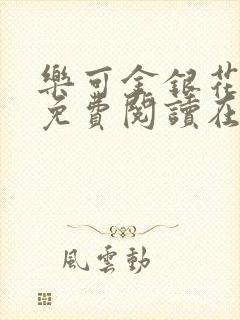 樂可金銀花
免費閱讀在
風雲動